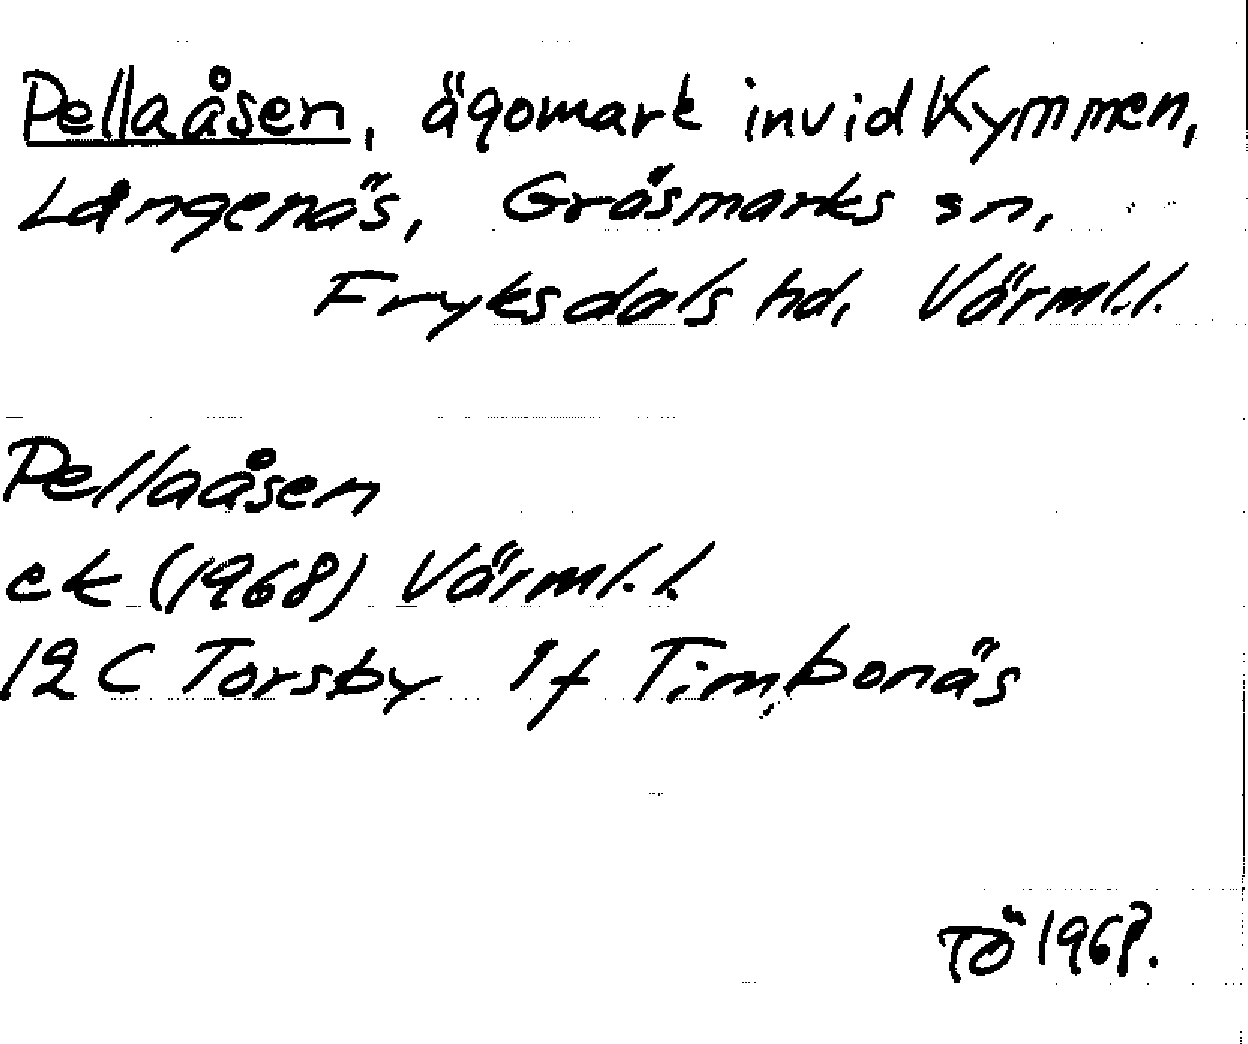 Pellaåsen, ägomark invid Kymmen,
Långenäs, Gräsmarks sn,
Fryksdals hd, Värml.l.
Pellaåsen
ek (1968) Värml.l.
12 C Torsby 1f Timbonäs
TÖ 1968.